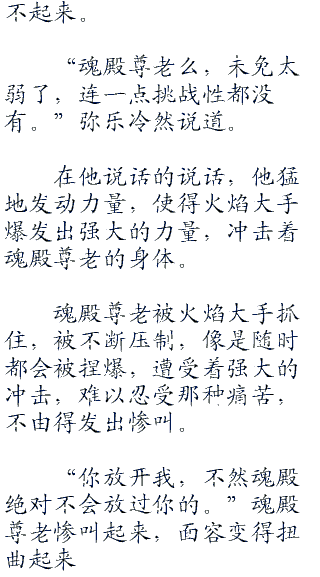 不起来。
“魂殿尊老么，未免太
弱了，连一点挑战性都没
有。”弥乐冷然说道。
在他说话的说话，他猛
地发动力量，使得火焰大手
爆发出强大的力量，冲击着
魂殿尊老的身体。
魂殿尊老被火焰大手抓
住，被不断压制，像是随时
都会被捏爆，遭受着强大的
冲击，难以忍受那种痛苦，
不由得发出惨叫。
“你放开我，不然魂殿
绝对不会放过你的。”魂殿
尊老惨叫起来，面容变得扭
曲起来